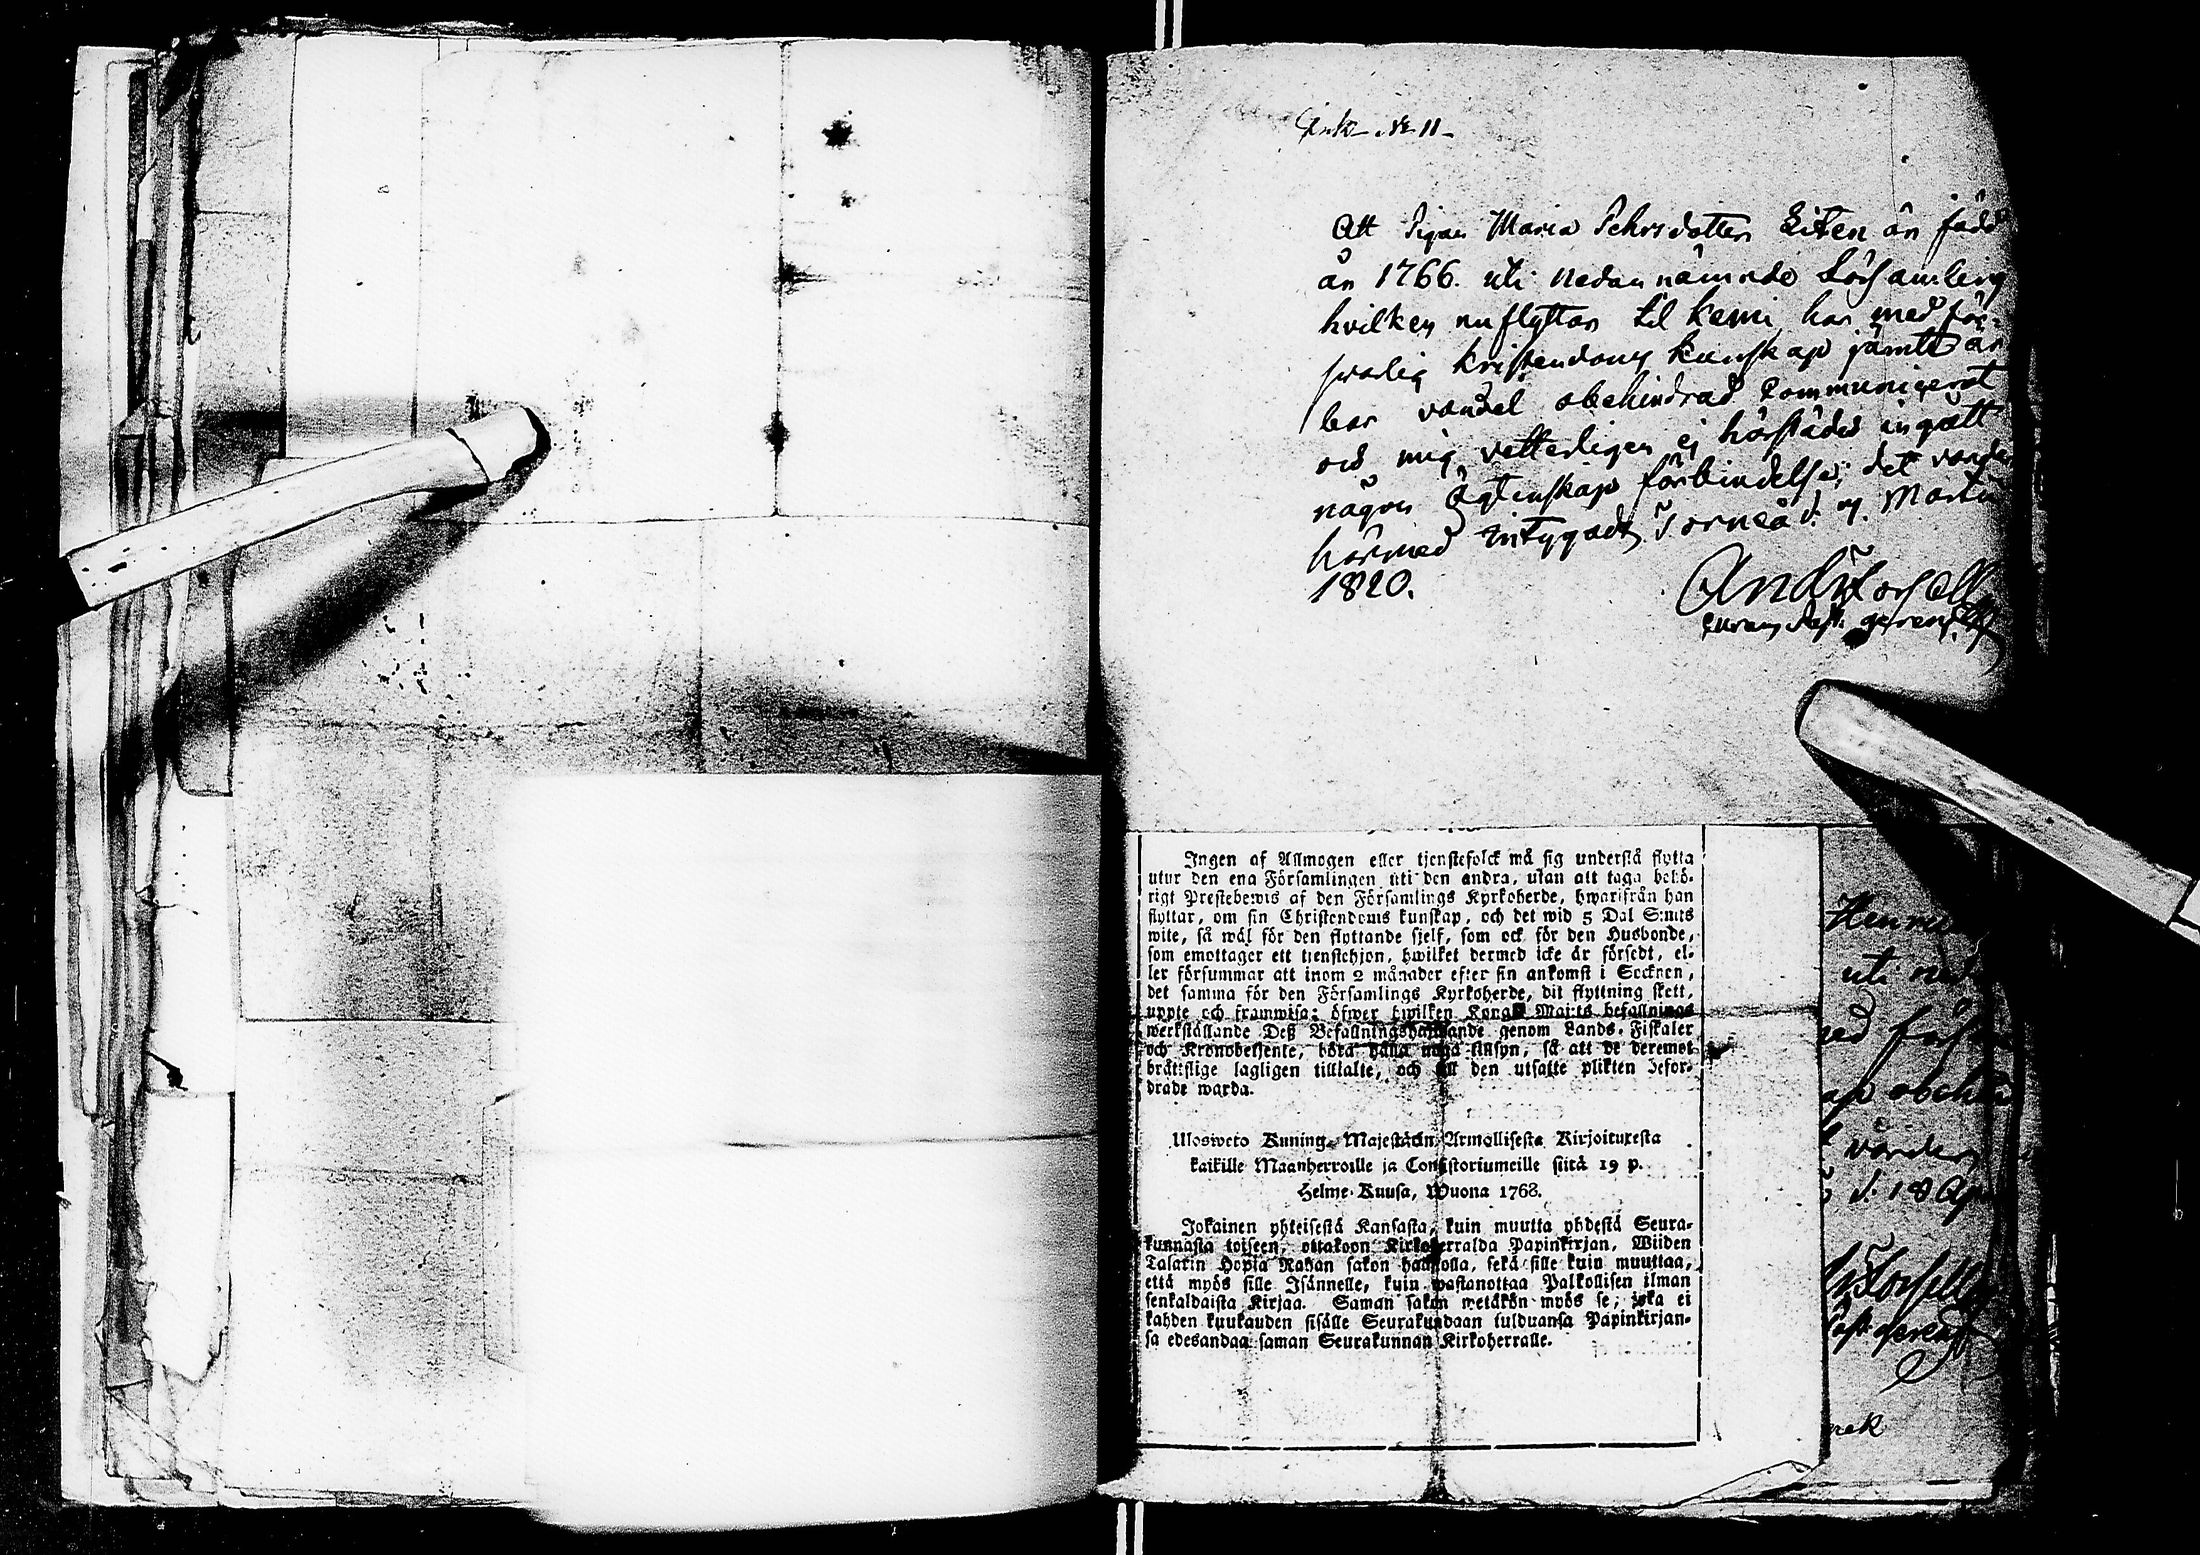 Ank. No 11.
Att Pigan Maria Pehrsdotter Liten är född
år 1766. uti nedannämnde Församling
hvilken nu flyttar til Kemi, har med för-
svarlig kristendoms kunskap jämte är
bar vandel obehindrad communicerat
och mig vetterligen ej härstädes ingått
någon Ägtenskaps förbindelse; det varder
härmed intygadt, Torneå d. 7. Martii
1820.
And: Forsell
Ingen af Allmogen eller tjenstefolck må sig understå flytta
utur den ena Församlingen uti den andra, utan att taga behö-
rigt Prestebewis af den Församlings Kyrkoherde, hwarifrån han
flyttar, om sin Christendoms kunskap, och det wid 5 Dal S:mts
wite, så wäl för den flyttande sjelf, som ock för den Husbonde,
som emottager ett tienstehjon, hwilket dermed icke är försedt, el-
ler försummar att inom 2 månader efter sin ankomst i Socknen,
det samma för den Församlings Kyrkoherde, dit flyttning skett,
uppte och framwisa; öfwer hwilken Kongl Maj:ts befallnings
werkställande Deß Befallningshafwande genom Lands-Fiskaler
och Kronobetjente, böra hålla noga insyn, så att de deremot
bråttslige lagligen tilltalte, och till den utsatte plikten befor-
drade warda.
Ulosweto Kuning. Majestätin Armollisesta Kirjoituxesta
kaikille Maanherroille ja Consistoriumeille siitä 19 p.
Helme-Kuusa, Wuona 1768.
Jokainen yhteisestä Kansasta, kuin muutta yhdestä Seura-
kunnasta toiseen, ottakoon Kirkoherralda Papinkirjan, Wiiden
Talarin Hopia Rahan sakon haastolla, sekä sille kuin muuttaa,
että myös sille Isännelle, kuin wastanottaa Palkollisen ilman
senkaldaista Kirjaa. Saman sakon wetäkön myös se, joka ei
kahden kuukauden sisälle Seurakundaan tulduansa Papinkirjan-
sa edesandaa saman Seurakunnan Kirkoherralle.
Henric
uti ned
ed förs
ap obehin
varder
d. 18 Apr
Forsell